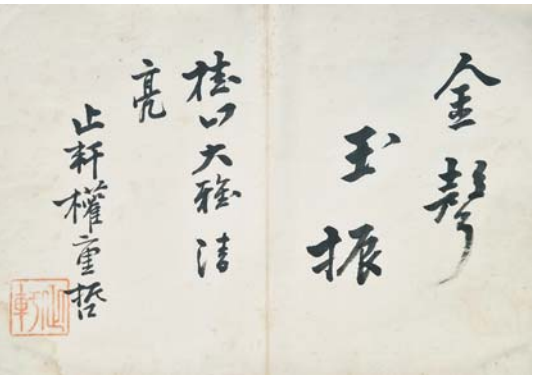 金聲
玉振
桂山大雅清
亮
止軒權重哲
止軒